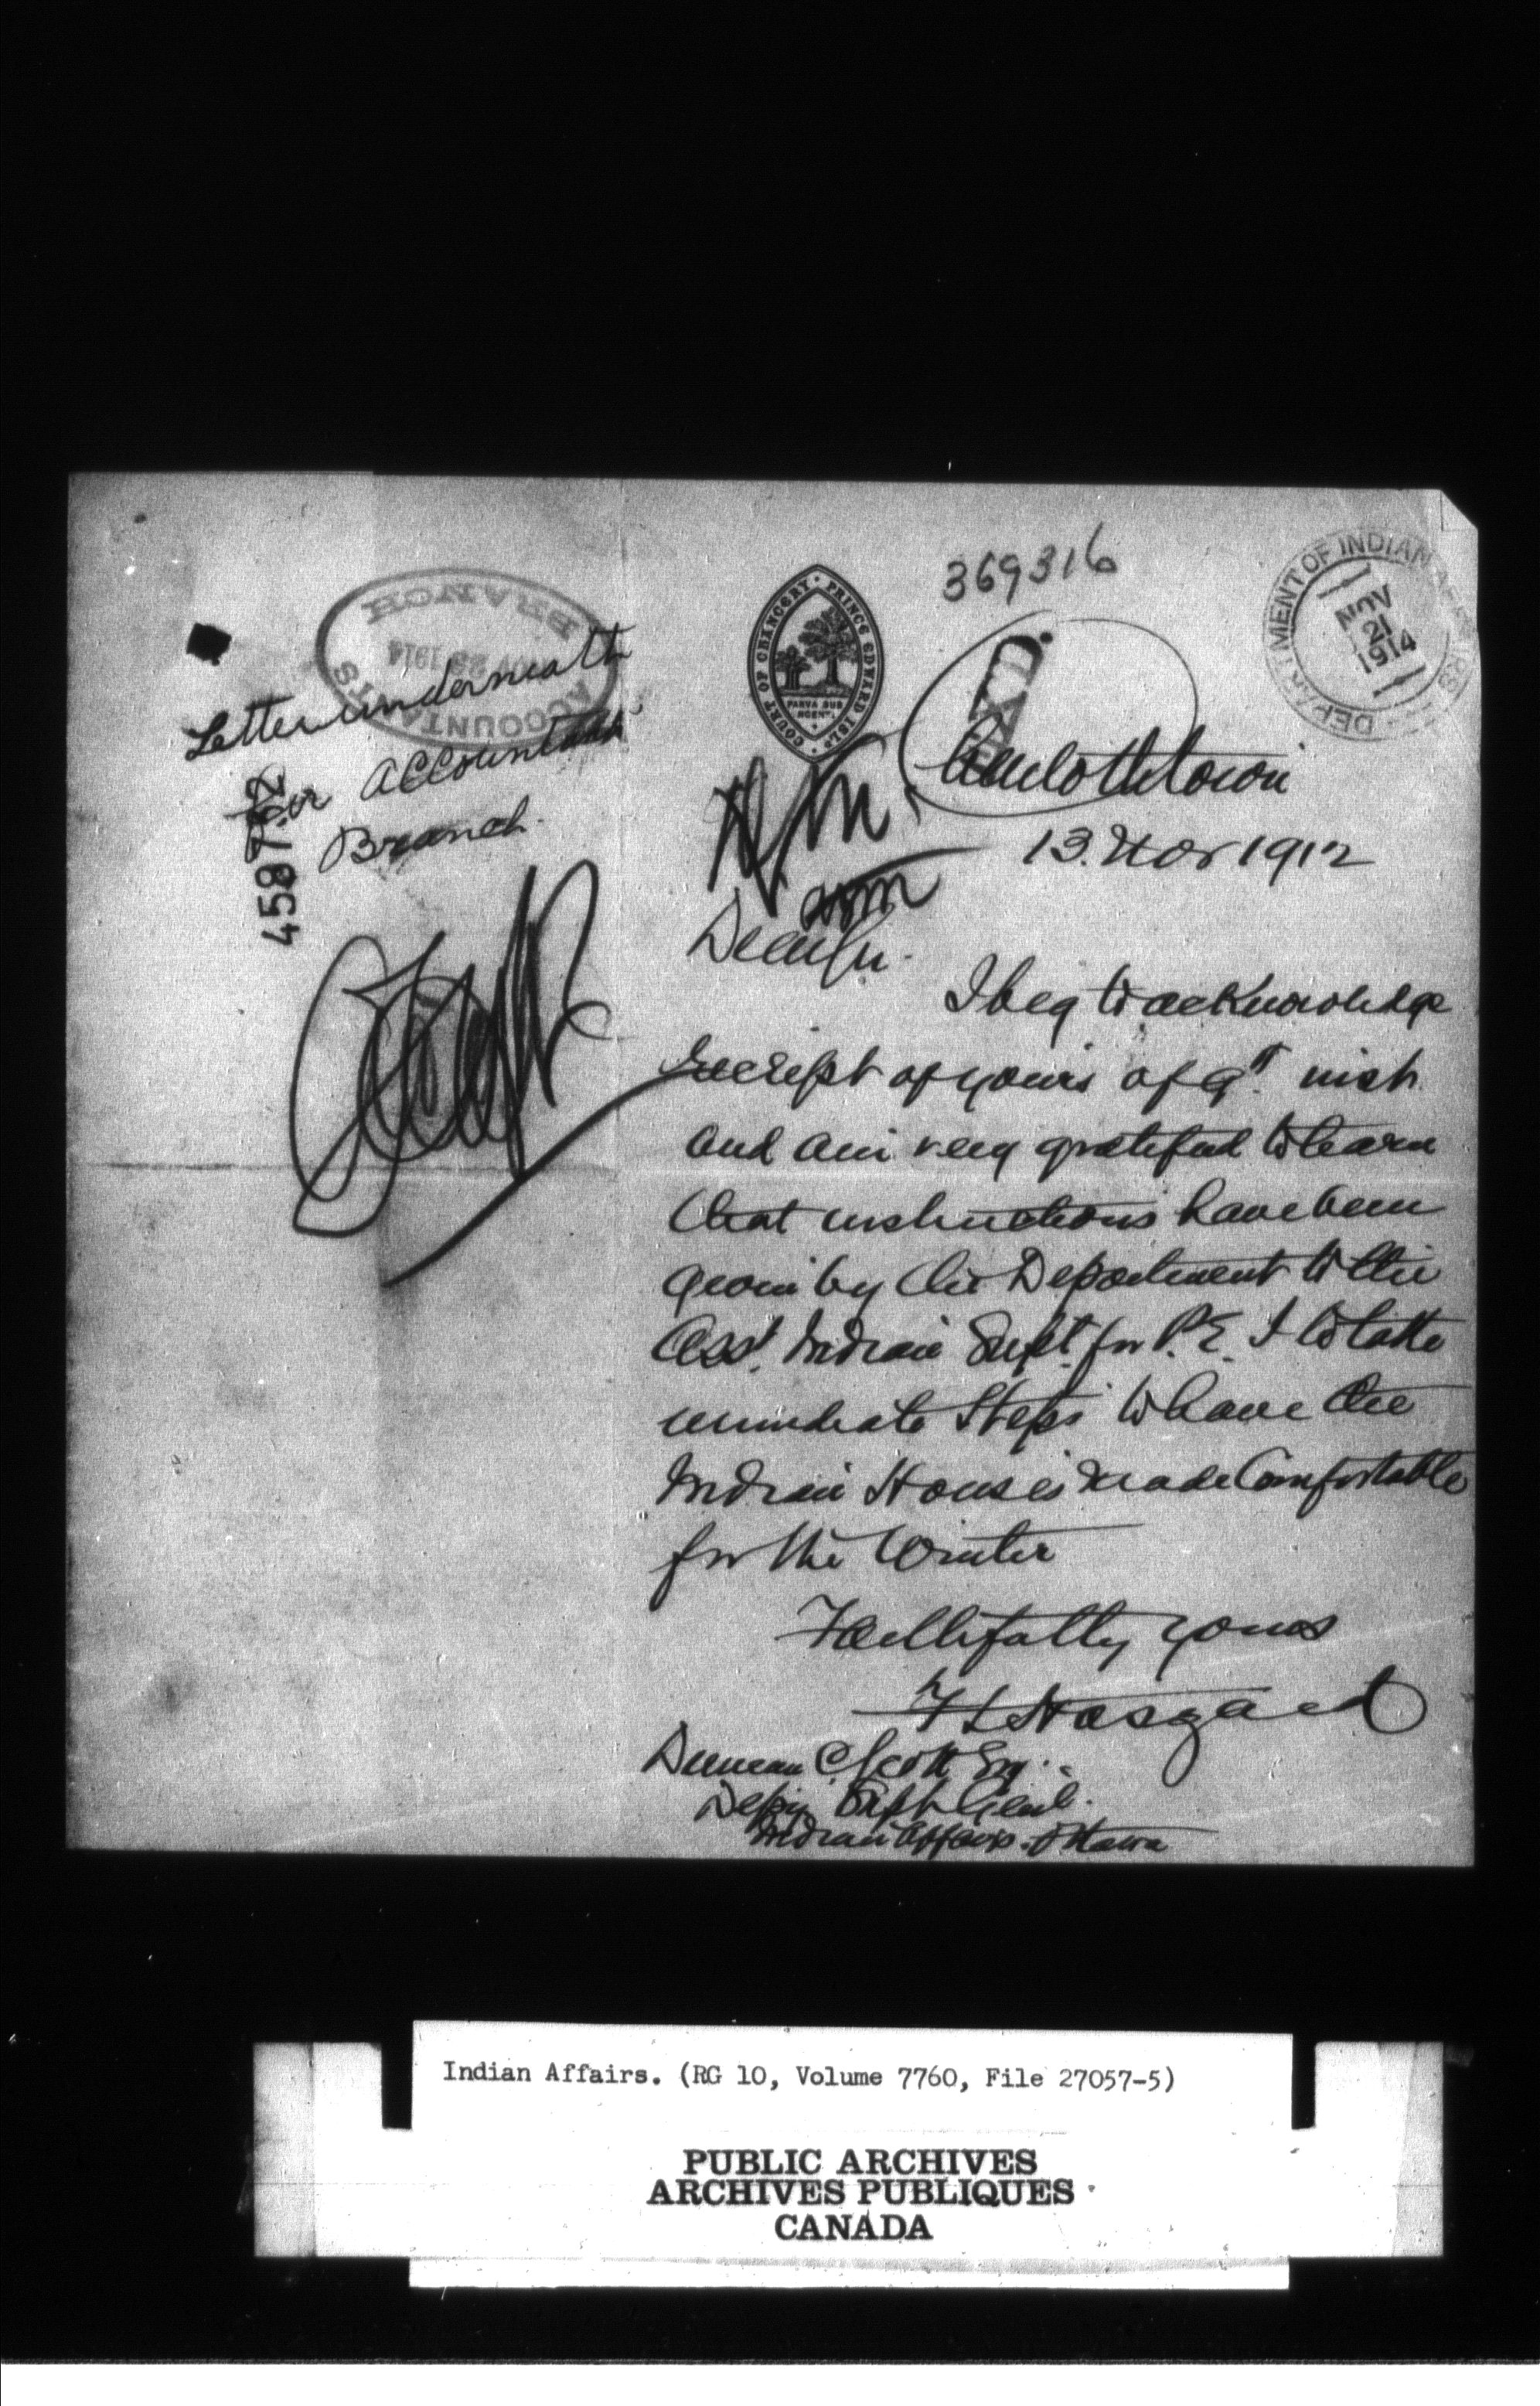 369316
DEPARTMENT OF INDIAN AFFAIRS
NOV
21
1914
ACCOUNTANTS BRANCH
NOV 23 1914
COURT OF CHANCERY · PRINCE EDWARD ISLD
PARVA SUB
INGENTI
Letter underneath
for Accountants
Branch.
45872
Charlottetown
13. Nov 1912
Dear Sir.
I beg to acknowledge
receipt of yours of 9th inst.
and am very grateful to learn
that instructions have been
given by the Department to the
Asst. Indian Supt. for P. E. I to take
immediate Steps to have the
Indian Houses made Comfortable
for the Winter
Faithfully yours
F L Haszard
Duncan C Scott Esq.
Depy. Supt Genl.
Indian Affairs. Ottawa
Indian Affairs. (RG 10, Volume 7760, File 27057-5)
PUBLIC ARCHIVES
ARCHIVES PUBLIQUES
CANADA